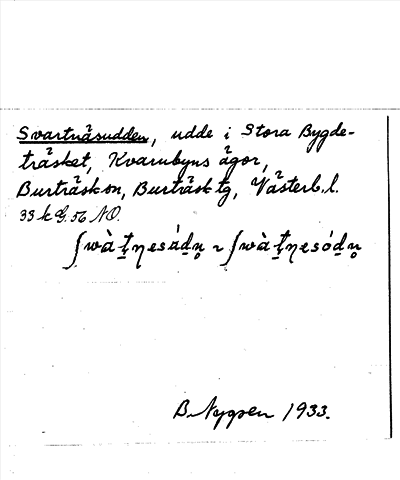 Svartnäsudden, udde i Stora Bygde-
träsket, Kvarnbyns ägor,
Burträsk sn, Burträsk tg, Västerb. l.
33 k G. 56 NO.
ʃwàṯn̥esádn̥ ~ ʃwàṯn̥esódn̥
B. Nygren 1933.